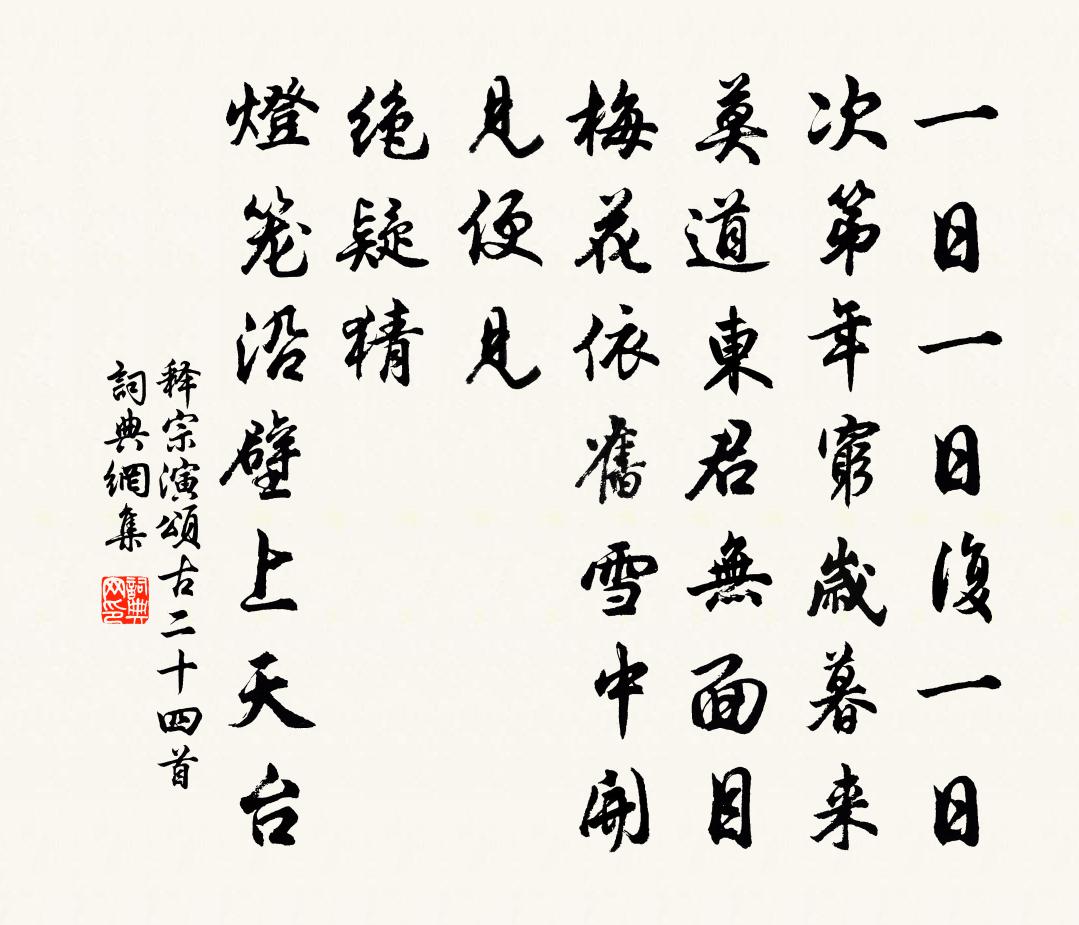 一日一日復一日
次第年窮歲暮来
莫道東君無面目
梅花依舊雪中開
見便見
绝疑猜
燈笼沿壁上天台
释宗演頌古二十四首
詞典網集
詞典网印